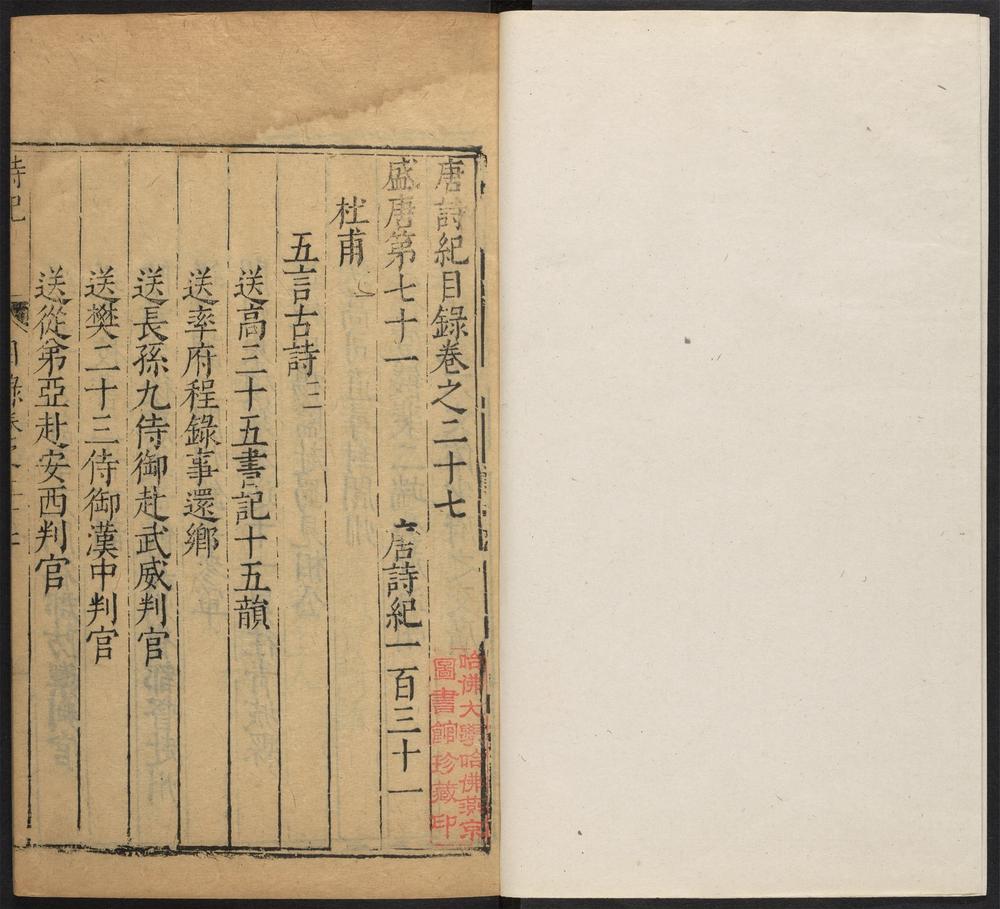 唐詩紀目錄卷之二十七
盛唐第七十一 唐詩紀一百三十一
杜甫
五言古詩三
送高三十五書記十五韻
送率府程錄事還鄉
送長孫九侍御赴武威判官
送樊二十三侍御漢中判官
送從弟亞赴安西判官
詩紀 目錄卷之二十七
哈佛大學哈佛燕京
圖書館珍藏印